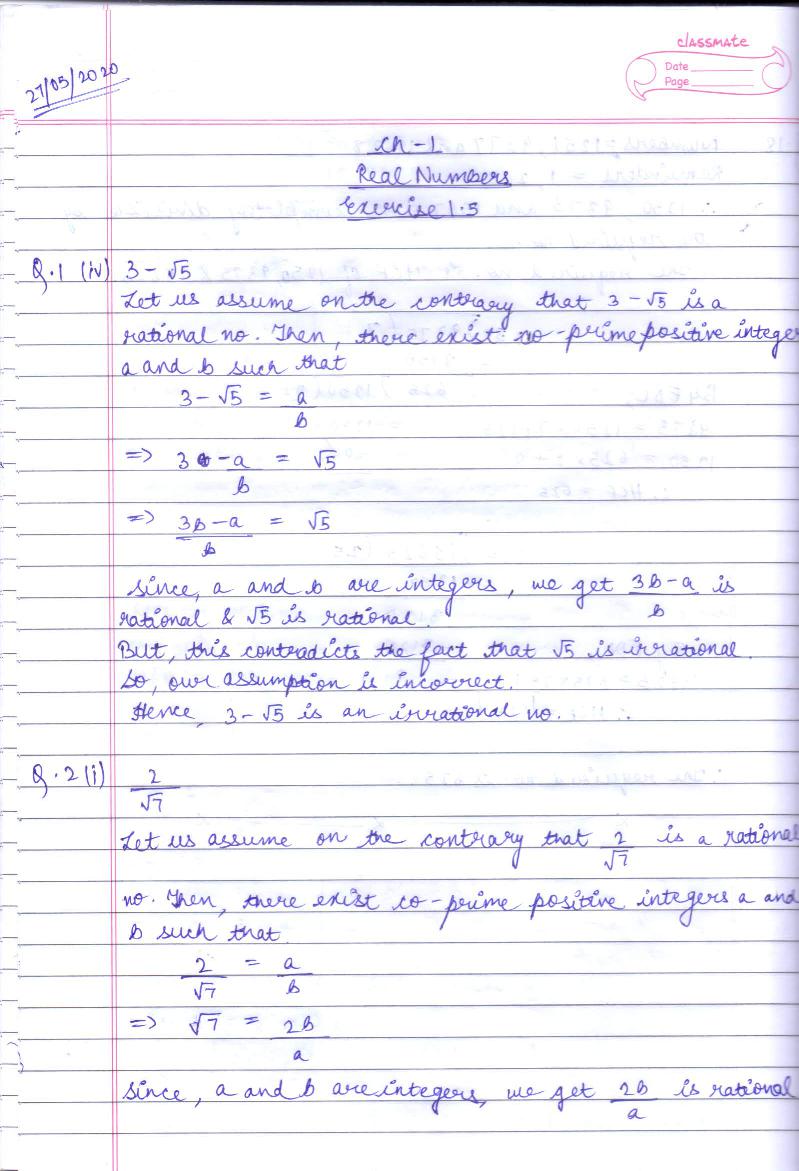 classmate
Date
Page
27/05/2020
Ch-1
Real Numbers
Exercise 1.5
Q.1 (iv) 3 - √5
Let us assume on the contrary that 3 - √5 is a
rational no. Then, there exist co-prime positive integer
a and b such that
3 - √5 = a/b
=> 3 - a/b = √5
=> 3b - a/b = √5
Since, a and b are integers, we get 3b - a/b is
rational & √5 is rational.
But, this contradicts the fact that √5 is irrational.
So, our assumption is incorrect.
Hence, 3 - √5 is an irrational no.
Q.2 (i) 2/√7
Let us assume on the contrary that 2/√7 is a rational
no. Then, there exist co-prime positive integers a and
b such that
2/√7 = a/b
=> √7 = 2b/a
Since, a and b are integers, we get 2b/a is rational